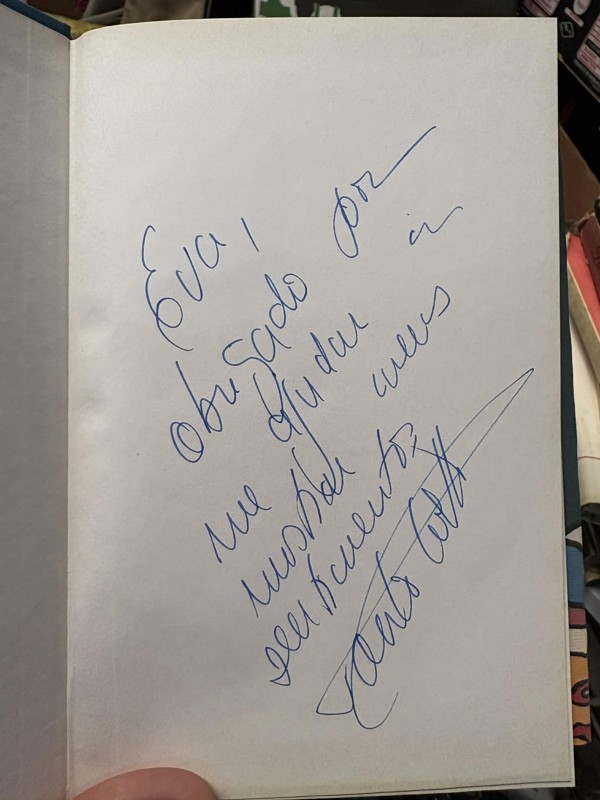 Eva,
obrigado por
me ajudar a
mostrar meus
sentimentos